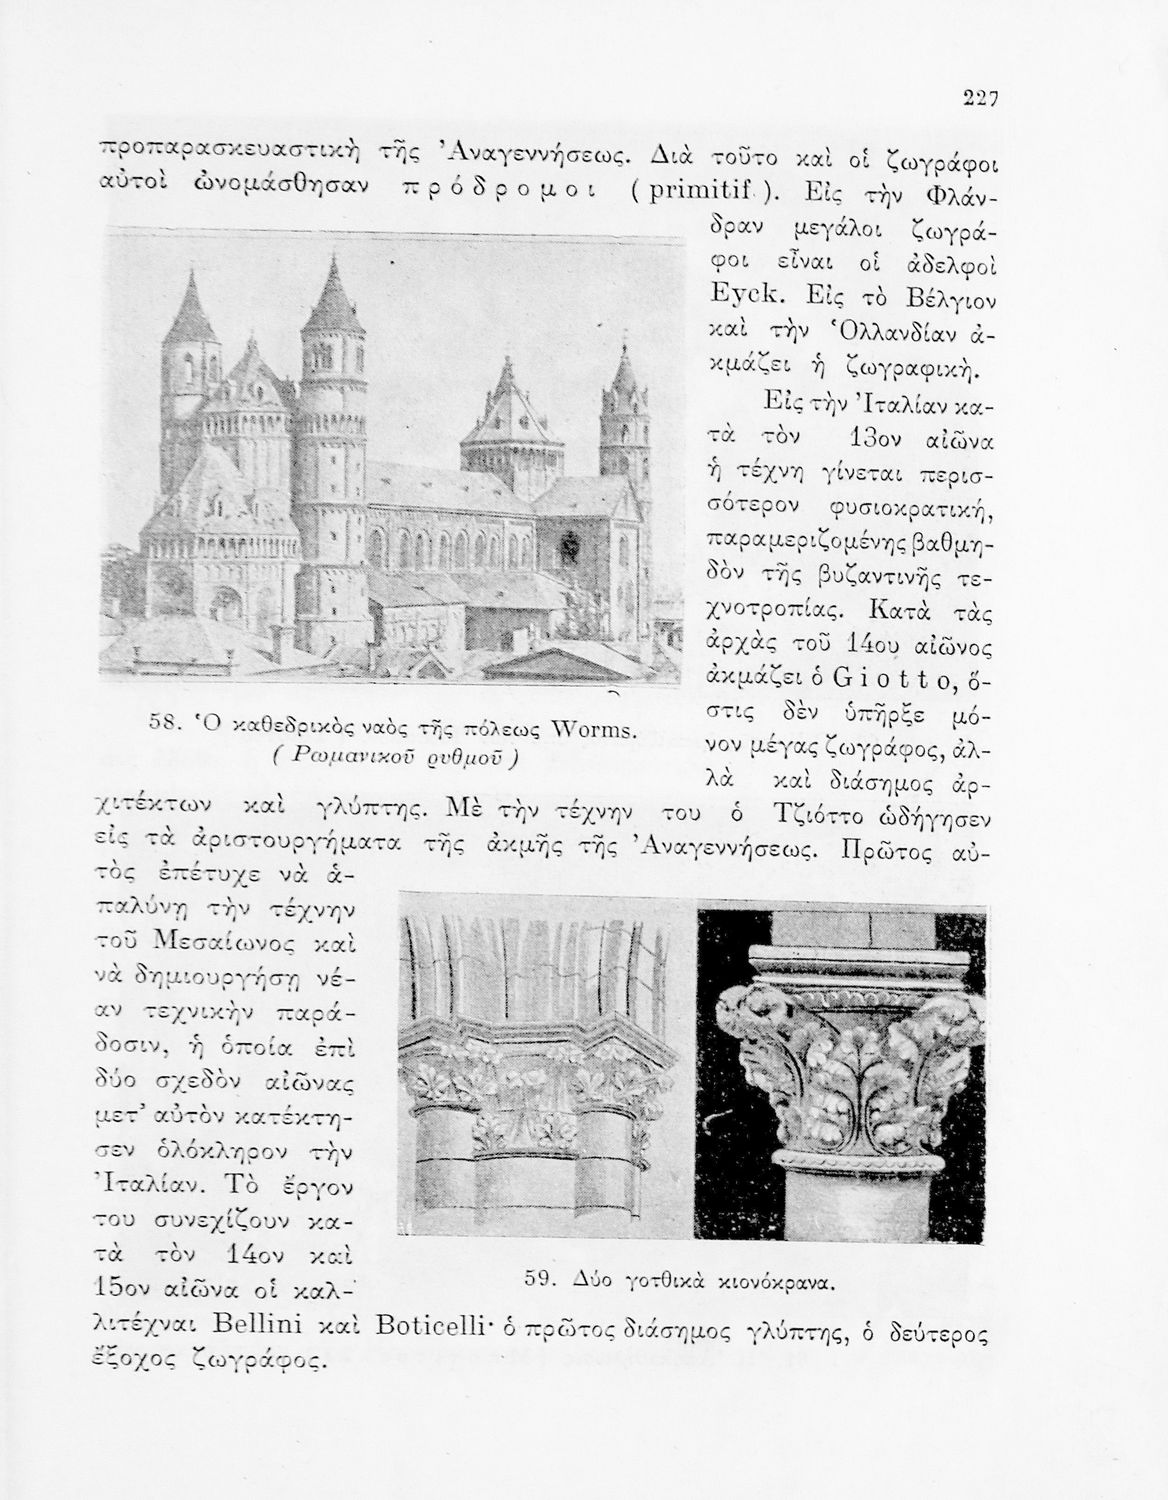 227
προπαρασκευαστικὴ τῆς Ἀναγεννήσεως. Διὰ τοῦτο καὶ οἱ ζωγράφοι
αὐτοὶ ὠνομάσθησαν πρόδρομοι (primitif). Εἰς τὴν Φλάν-
δραν μεγάλοι ζωγρά-
φοι εἶναι οἱ ἀδελφοὶ
Eyck. Εἰς τὸ Βέλγιον
καὶ τὴν Ὁλλανδίαν ἀ-
κμάζει ἡ ζωγραφικὴ.
Εἰς τὴν Ἰταλίαν κα-
τὰ τὸν 13ον αἰῶνα
ἡ τέχνη γίνεται περισ-
σότερον φυσιοκρατική,
παραμεριζομένης βαθμη-
δὸν τῆς βυζαντινῆς τε-
χνοτροπίας. Κατὰ τὰς
ἀρχὰς τοῦ 14ου αἰῶνος
ἀκμάζει ὁ Giotto, ὅ-
στις δὲν ὑπῆρξε μό-
νον μέγας ζωγράφος, ἀλ-
λὰ καὶ διάσημος ἀρ-
58. Ὁ καθεδρικὸς ναὸς τῆς πόλεως Worms.
(Ρωμανικοῦ ρυθμοῦ)
χιτέκτων καὶ γλύπτης. Μὲ τὴν τέχνην του ὁ Τζιόττο ὡδήγησεν
εἰς τὰ ἀριστουργήματα τῆς ἀκμῆς τῆς Ἀναγεννήσεως. Πρῶτος αὐ-
τὸς ἐπέτυχε νὰ ἁ-
παλύνῃ τὴν τέχνην
τοῦ Μεσαίωνος καὶ
νὰ δημιουργήσῃ νέ-
αν τεχνικὴν παρά-
δοσιν, ἡ ὁποία ἐπὶ
δύο σχεδὸν αἰῶνας
μετ' αὐτὸν κατέκτη-
σεν ὁλόκληρον τὴν
Ἰταλίαν. Τὸ ἔργον
του συνεχίζουν κα-
τὰ τὸν 14ον καὶ
15ον αἰῶνα οἱ καλ-
59. Δύο γοτθικὰ κιονόκρανα.
λιτέχναι Bellini καὶ Boticelli· ὁ πρῶτος διάσημος γλύπτης, ὁ δεύτερος
ἔξοχος ζωγράφος.